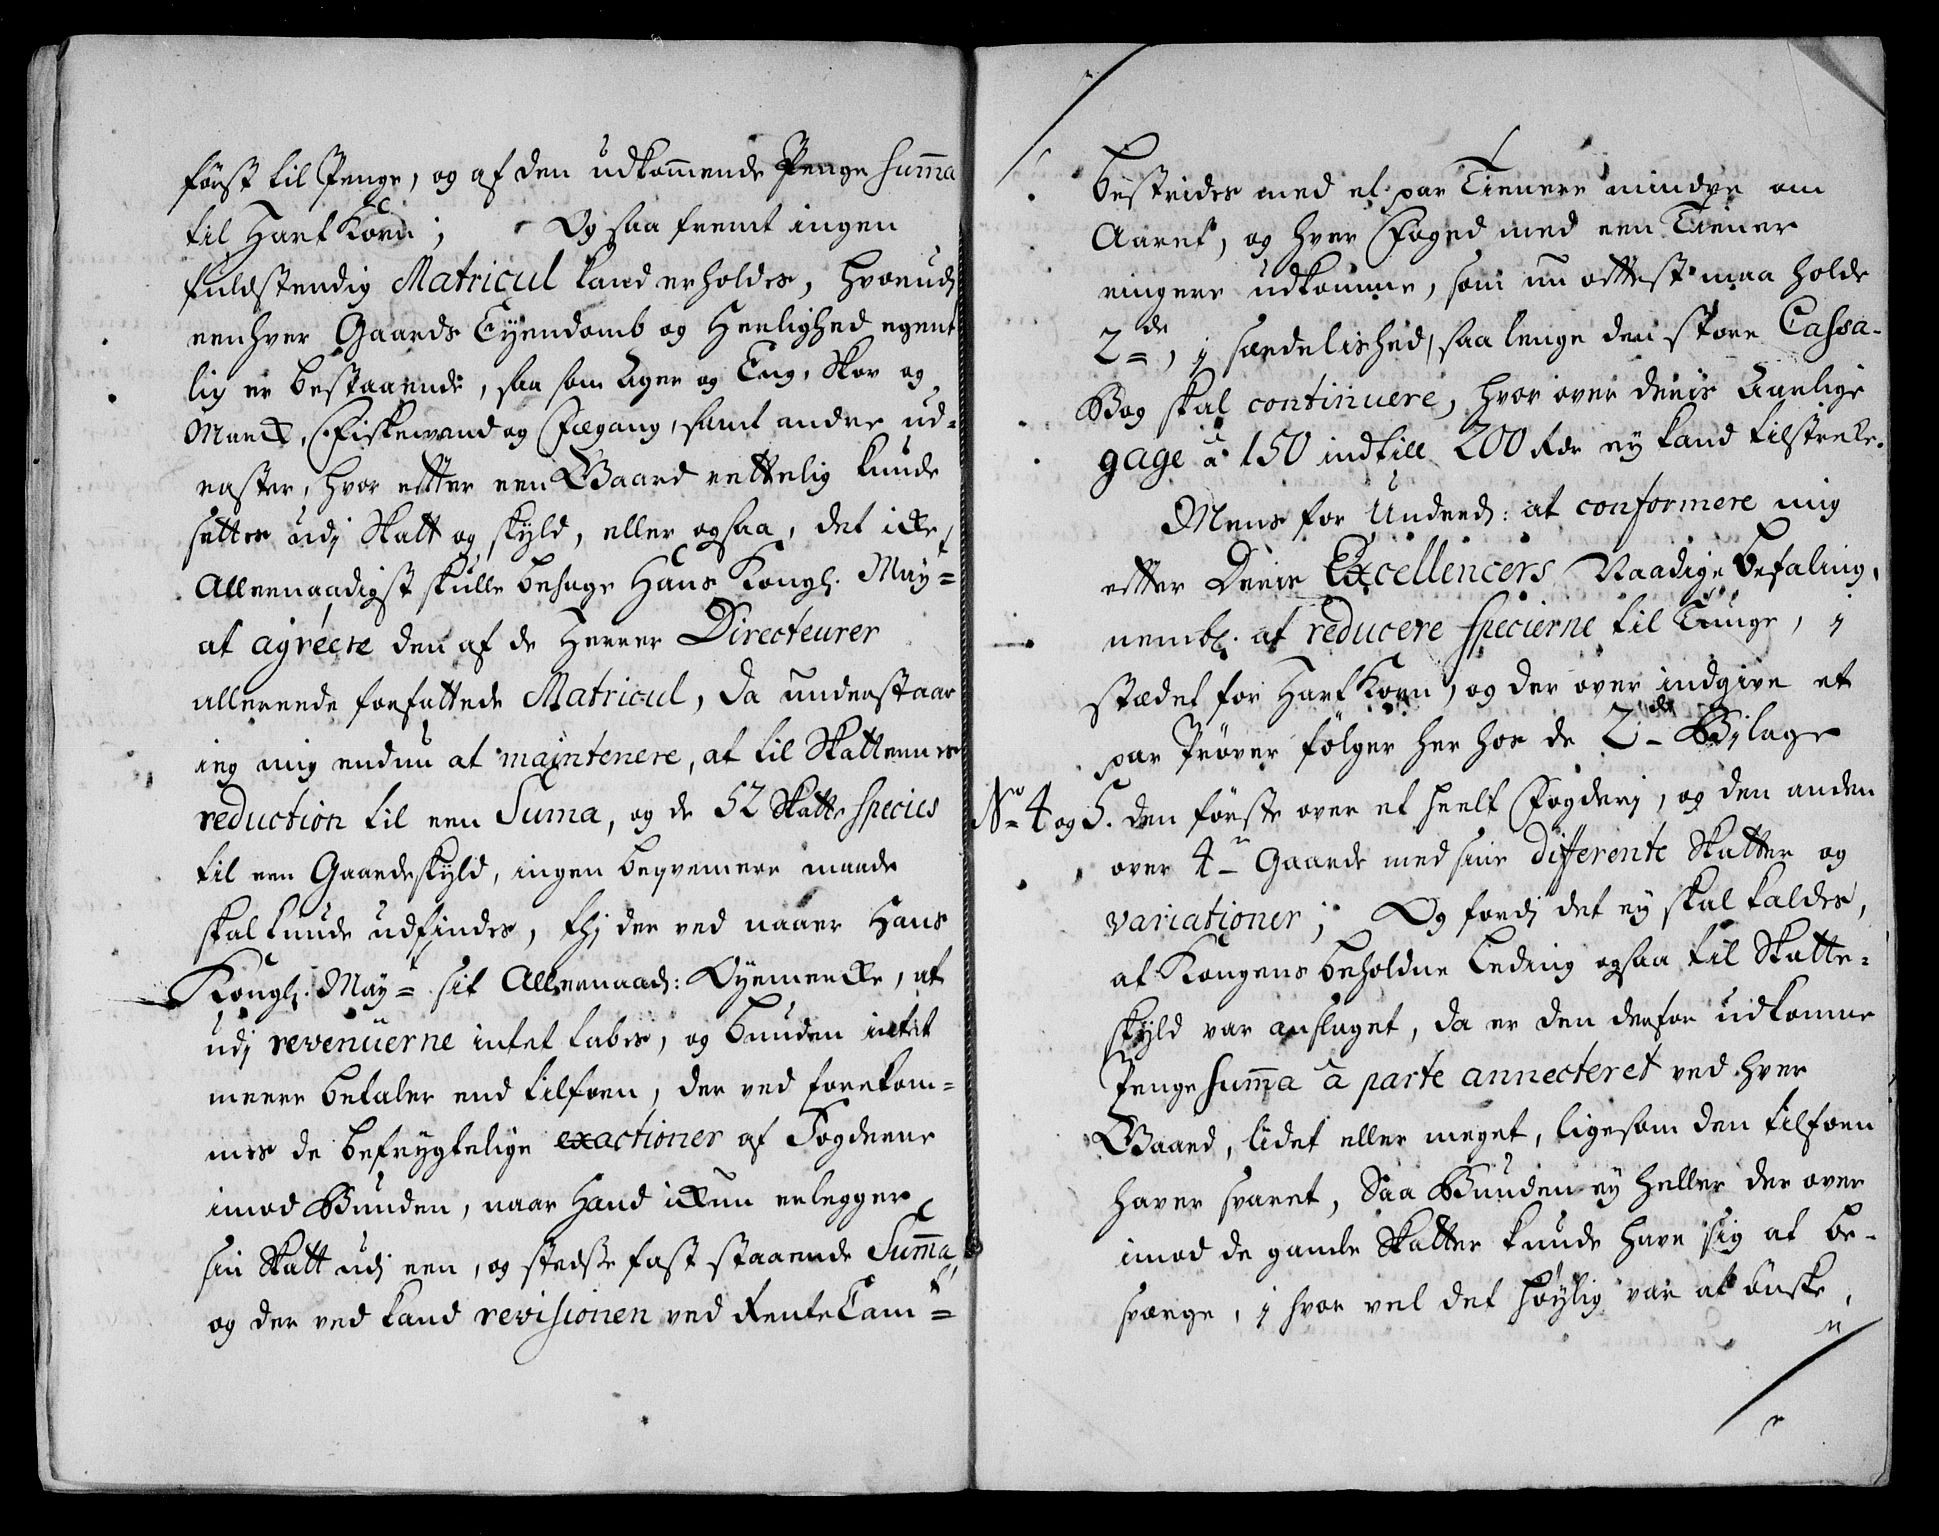 först til Penge, og af den udkom̄ende Penge Sum̄a
til Hart Korn; Og saa fremt ingen
fuldstendig Matricul kand erholdes, hvorudj
eenhver Gaards Eyendomb og Herlighed egent
lig er bestaaende, saa som Ager og Eng, Skov og
Marck, Fiskevand og Fægang, samt andre ud-
raster, hvor effter een Gaard rettelig kunde
settes udj Skatt og skyld, eller ogsaa, det icke
Allernaadigst skulle behage Hans Kongl. Mayt=
at agréere den af de Herrer Directeurer
allereede forfattede Matricul, da understaar
ieg mig endnu at maintenere, at til Skatternes
reduction til een Suma, og de 52 Skatte Species
til een Gaardeskyld, ingen beqvemere maade
skal kunde udfindes, thj der ved naaer Hans
Kongl. Mayt= sit Allernaad: Öyemercke, at
udj revenüerne intet tabes, og bunden intet
meere betaler end tilforn, der ved forekom-
mes de befrygtelige exactioner af Fogderne
imod Bunden, naar Hand ickun erlegger
sin Skatt udj een, og stedsse fast staaende Sum̄a,
og der ved kand revisionen ved Rente Cam=
bestrides med et par Tienere mindre om
Aaret, og hver Foged med een Tiener
ringere udkomme, som nu offtest maa holde
2de, j særdelished, saa lenge den store Cassa-
Bog skal continuere, hvor over deris Aarlige
gage à 150 indtill 200 Rdr ey kand tilstrecke.
Mens for Underd: at conformere mig
effter Deris Excellencers Naadige befaling,
nembl. at reducere Specierne til Tünge, j
stædet for Hart Korn, og der over indgive et
par Pröver fölger her hos de 2de Bilage
No 4 og 5. den förste over et heelt Fogderj, og den anden
over 4re Gaarde med sine differente Skatter og
variationer; Og fordj det ey skal kaldes,
at Kongens beholdne Leding ogsaa til Skatte-
skyld var anslaget, da er den derfor udkomne
Penge Sum̄a à parte annecteret ved hver
Gaard, lidet eller meget, ligesom den tilforn
haver svaret, Saa Bunden ey heller der over
imod de gamle Skatter kunde have sig at be-
sverge, j hvor vel det höylig var at önske,